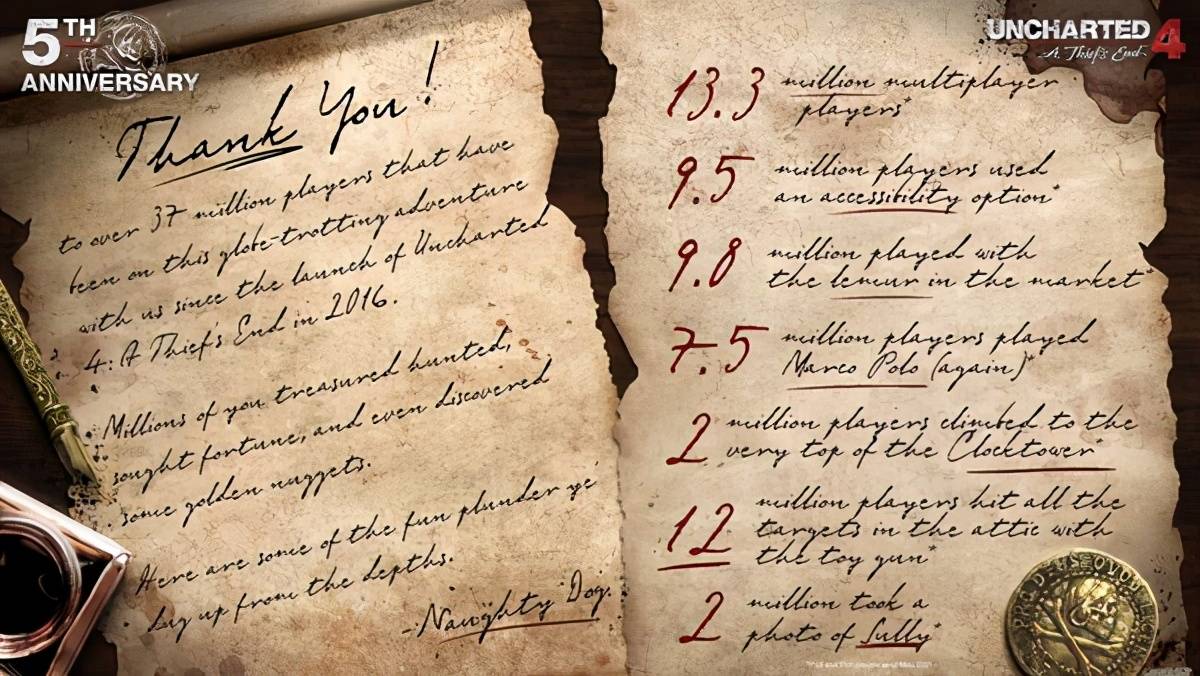 5TH
ANNIVERSARY
Thank You!
to over 37 million players that have
been on this globe-trotting adventure
with us since the launch of Uncharted
4: A Thief's End in 2016.
Millions of you treasured hunted,
sought fortune, and even discovered
some golden nuggets.
Here are some of the fun plunder ye
dug up from the depths.
-Naughty Dog.
UNCHARTED 4
A Thief's End
13.3 million multiplayer
players*
9.5 million players used
an accessibility option*
9.8 million played with
the lemur in the market*
7.5 million players played
Marco Polo (again)*
2 million players climbed to the
very top of the Clocktower*
12 million players hit all the
targets in the attic with
the toy gun*
2 million took a
photo of Sully*